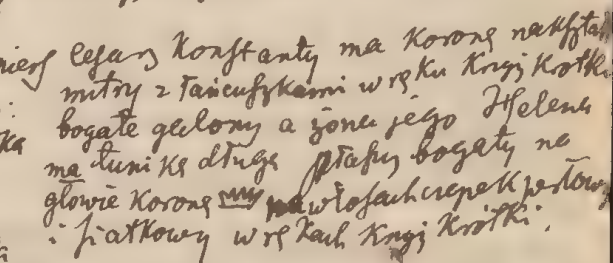 cesarz Konstanty ma Koronę nakształt
mitry z łańcuszkami w ręku Krzyż Krótki
bogate galony a żona jego Helena
ma tunikę długą płaszcz bogaty na
głowie Koronę na włosach czepek perłowy
i siatkowy w rękach Krzyż Krótki.